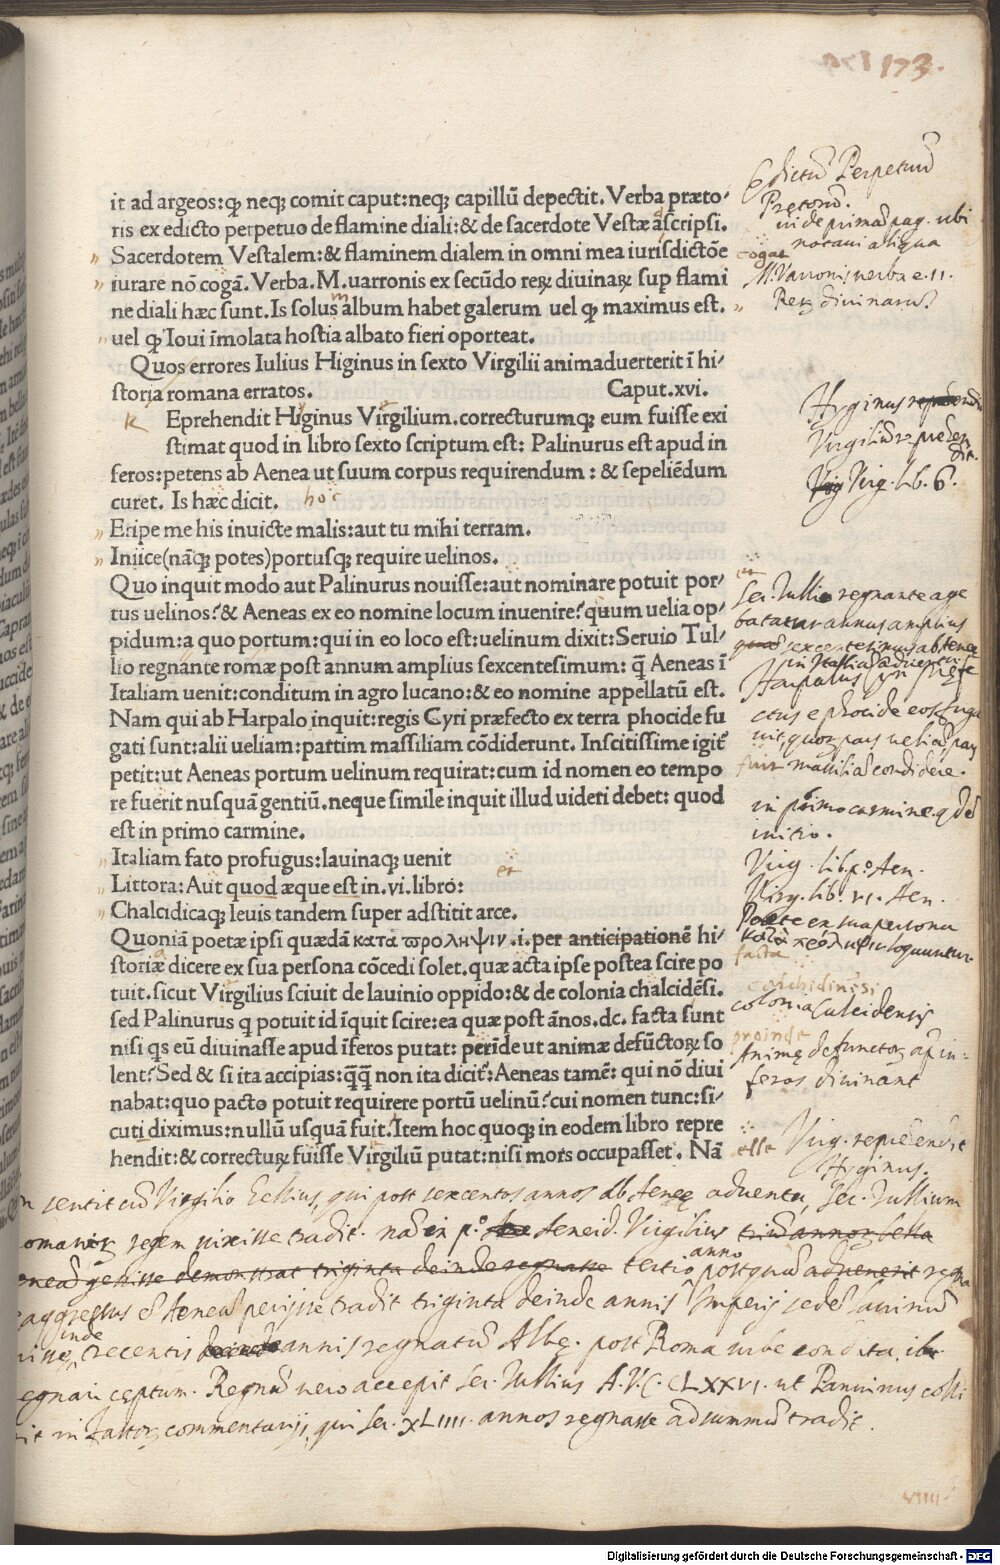 173.
it ad argeos:ꝙ neqꝫ comit caput:neqꝫ capillū depectit. Verba præto/
ris ex edicto perpetuo de flamine diali:& de sacerdote Vestæ ascripsi.
Sacerdotem Vestalem:& flaminem dialem in omni mea iurisdictōe
iurare nō cogā. Verba. M. uarronis ex secūdo reꝝ diuinaꝝ sup flami
ne diali hæc sunt. Is solus album habet galerum uel ꝙ maximus est.
uel ꝙ Ioui īmolata hostia albato fieri oporteat.
Quos errores Iulius Higinus in sexto Virgilii animaduerterit ī hi/
storia romana erratos. Caput.xvi.
Eprehendit Higinus Virgilium.correcturumqꝫ eum fuisse exi
stimat quod in libro sexto scriptum est: Palinurus est apud in
feros:petens ab Aenea ut suum corpus requirendum : & sepeliēdum
curet. Is hæc dicit. hoc
Eripe me his inuicte malis:aut tu mihi terram.
Iniice(nāqꝫ potes)portusqꝫ require uelinos.
Quo inquit modo aut Palinurus nouisse:aut nominare potuit por/
tus uelinos?& Aeneas ex eo nomine locum inuenire?quum uelia op/
pidum:a quo portum:qui in eo loco est:uelinum dixit:Seruio Tul/
lio regnante romæ post annum amplius sexcentesimum: q̄ Aeneas ī
Italiam uenit:conditum in agro lucano:& eo nomine appellatū est.
Nam qui ab Harpalo inquit:regis Cyri præfecto ex terra phocide fu
gati sunt:alii ueliam:partim massiliam cōdiderunt. Inscitissime igit᷑
petit:ut Aeneas portum uelinum requirat:cum id nomen eo tempo
re fuerit nusquā gentiū.neque simile inquit illud uideri debet: quod
est in primo carmine.
Italiam fato profugus:lauinaqꝫ uenit
Littora: Aut quod æque est in.vi.libro:
Chalcidicaqꝫ leuis tandem super adstitit arce.
Quoniā poetæ ipsi quædā κατα προληψιν .i.per anticipationē hi/
storiæ dicere ex sua persona cōcedi solet.quæ acta ipse postea scire po
tuit.sicut Virgilius sciuit de lauinio oppido:& de colonia chalcidēsi.
sed Palinurus q potuit id īquit scire:ea quæ post ānos.dc. facta sunt
nisi qs eū diuinasse apud īferos putat: perīde ut animæ defūctoꝝ so
lent?Sed & si ita accipias:q̄q̄ non ita dicit᷑:Aeneas tamē: qui nō diui
nabat:quo pacto potuit requirere portū uelinū?cui nomen tunc:si/
cuti diximus:nullū usquā fuit.Item hoc quoqꝫ in eodem libro repre
hendit:& correctuꝝ fuisse Virgiliū putat:nisi mors occupasset. Nā
Edictū Perpetuū
Pretoriū.
uide primā pag. ubi
notaui aliqua
cogat
M. Varronis uerba e. 11.
Reꝝ diuinarū.
Hyginus
Virgiliū reprehen
dit.
Virg. lib. 6.
Ser. Tullio regnante age
batatur annus amplius
sexcentesimus ab Aeneę
in Italiā aduentu
Harpalus Cyri pręfe
ctus e phocide eos fuga
uit, quoꝝ pars ueliā, pars
massiliā condidere.
in primo carmine. q. de
initio.
Virg. lib. p.º Aen.
Virg. lib. vi. Aen.
Poete ex sua persona
κατὰ πρόληψιν loquuntur
facta
calchidinẽsi
colonia Calcidensis
proinde
Animę defunctoꝝ ap. in=
feros diuinant
esse
Virg. reprehendit
Hyginus.
sentit cū Virgilio Gellius, qui post sexcentos annos ab Aeneę aduentu, Ser. Tullium
romanoꝝ regem uixisse tradit. nā in p.º Aeneid. Virgilius triū annoꝝ bella
gessisse demonstrat triginta deinde regnasse tertio anno postquā aduenerit regna
aggressus est Aeneā perijsse tradit triginta deinde annis Imperij sedē lauiniū
inde trecentis annis regnatū Albę. post Roma urbe condita, ibi
regnari ceptum. Regnū uero accepit Ser. Tullius A.V.C. CLXXVI. ut Panuinus colli
git in fastoꝝ commentarijs, qui Ser. XLIIII. annos regnasse ad summū tradit.
VIIII
Digitalisierung gefördert durch die Deutsche Forschungsgemeinschaft - DFG